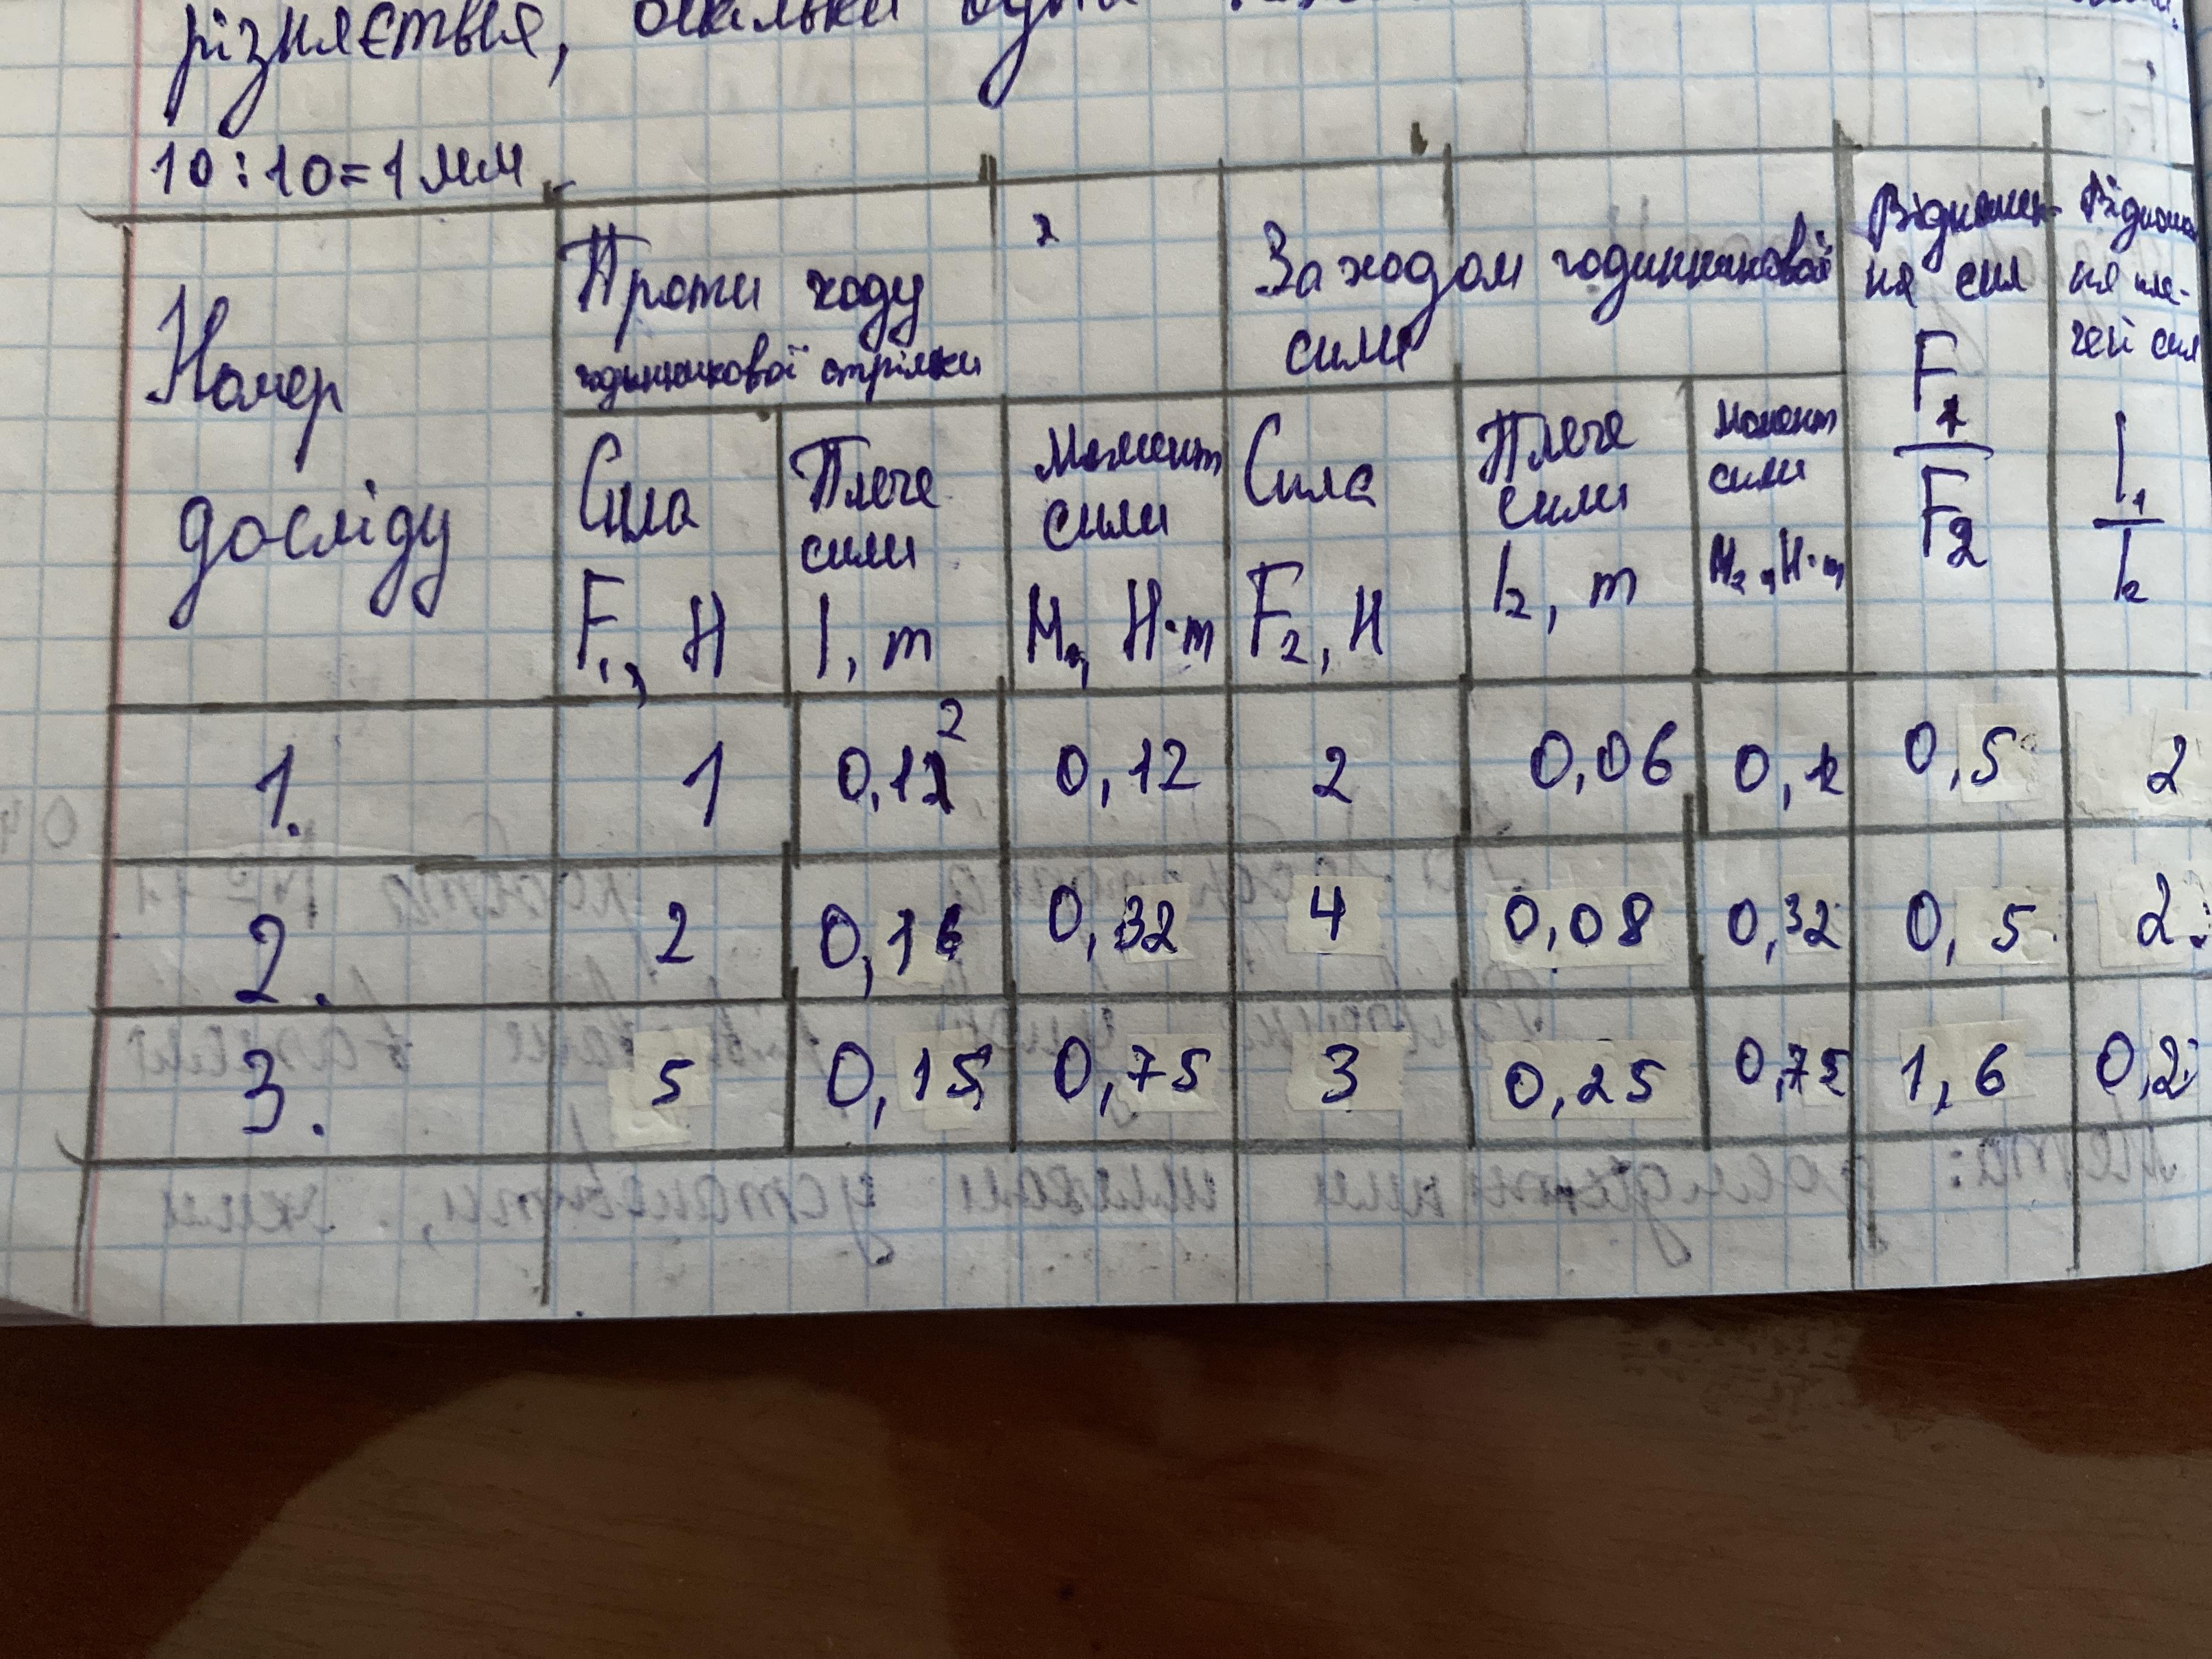 різняється, оскільки одна
10:10=1 мм
Номер досліду
Проти ходу годинникової стрілки
2
За ходом годинникової сили
Відношення сил F1/F2
Відношення плечей сил l1/l2
Сила F1, H
Плече сили l, m
Момент сили M, H·m
Сила F2, H
Плече сили l2, m
Момент сили M2, H·m
1. 1 0,12 2 0,12 2 0,06 0,12 0,5 2
2. 2 0,16 0,32 4 0,08 0,32 0,5 2
3. 5 0,15 0,75 3 0,25 0,75 1,6 0,2